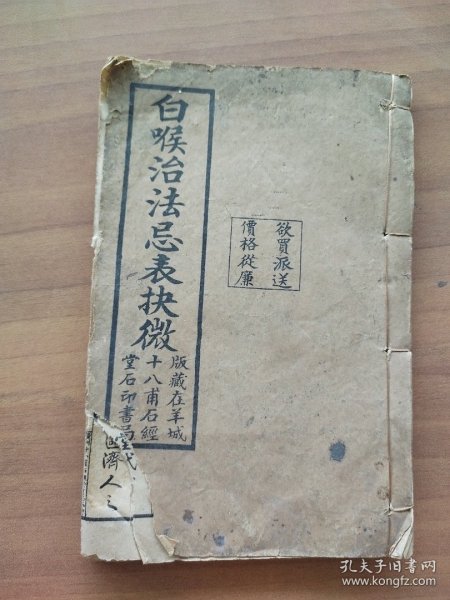 欲買派送
價格從廉
白喉治法忌表抉微
版藏在羊城
十八甫石經
堂石印書局
代
濟人之
孔夫子旧书网
www.kongfz.com